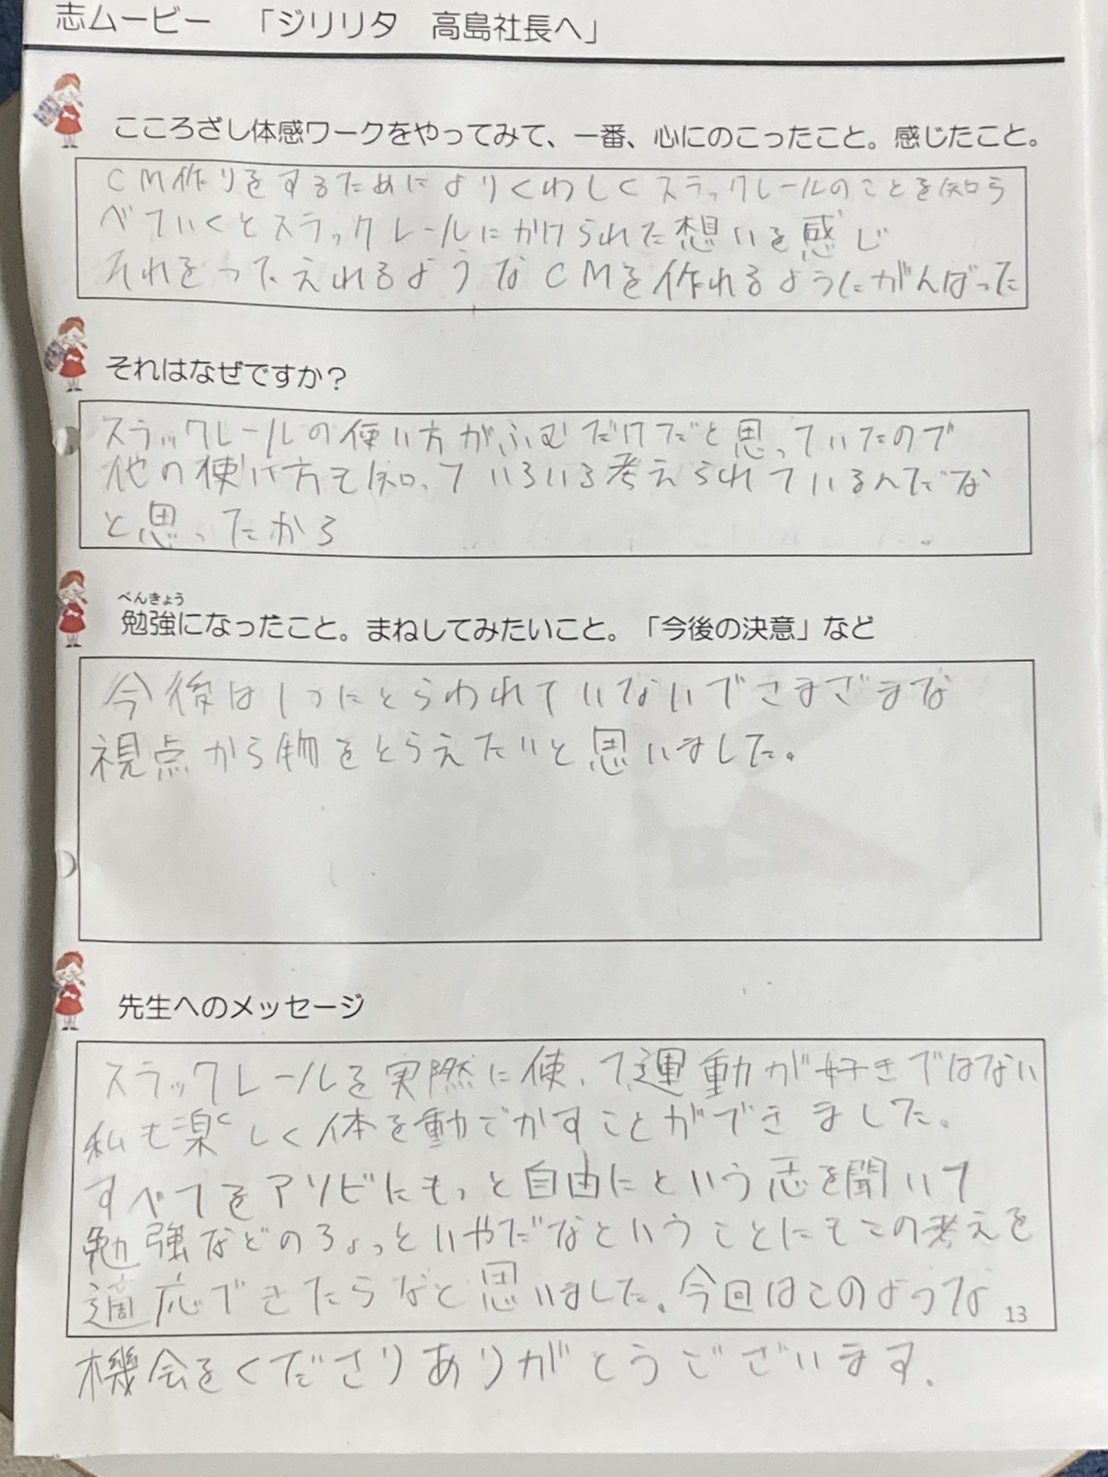 志ムービー 「ジリリタ 高島社長へ」
こころざし体感ワークをやってみて、一番、心にのこったこと。感じたこと。
CM作りをするためによりくわしくスラックレールのことを知ら
べていくとスラックレールにかけられた想いを感じ
それをつたえれるようなCMを作れるようにがんばった
それはなぜですか?
スラックレールの使い方がふむだけだと思っていたので
他の使い方も知っていろいろ考えられているんだな
と思ったから
べんきょう
勉強になったこと。まねしてみたいこと。「今後の決意」など
今後は1つにとらわれていないでさまざまな
視点から物をとらえたいと思いました。
先生へのメッセージ
スラックレールを実際に使って運動が好きではない
私も楽しく体を動ごかすことができました。
すべてをアソビにもっと自由にという志を聞いて
勉強などのちょっといやだなということにもこの考えを
適応できたらなと思いました。今回はこのような
13
機会をくださりありがとうございます。